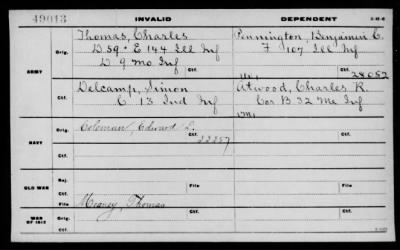 49013
INVALID
DEPENDENT
Thomas, Charles
Orig.
D 59 & E 144 Ill Inf
D 9 Mo Inf
Pennington, Benjamin C.
F 107 Ill Inf
ARMY
28052
Delcamp, Simon
Ctf.
C 13 Ind Inf
Atwood, Charles R.
Cor B 32 Me Inf
Coleman, Edward L.
Orig.
Ctf.
22257
NAVY
Ctf.
OLD WAR
File
File
Meaney, Thomas
WAR OF 1812
Orig.
Ctf.
Ctf.